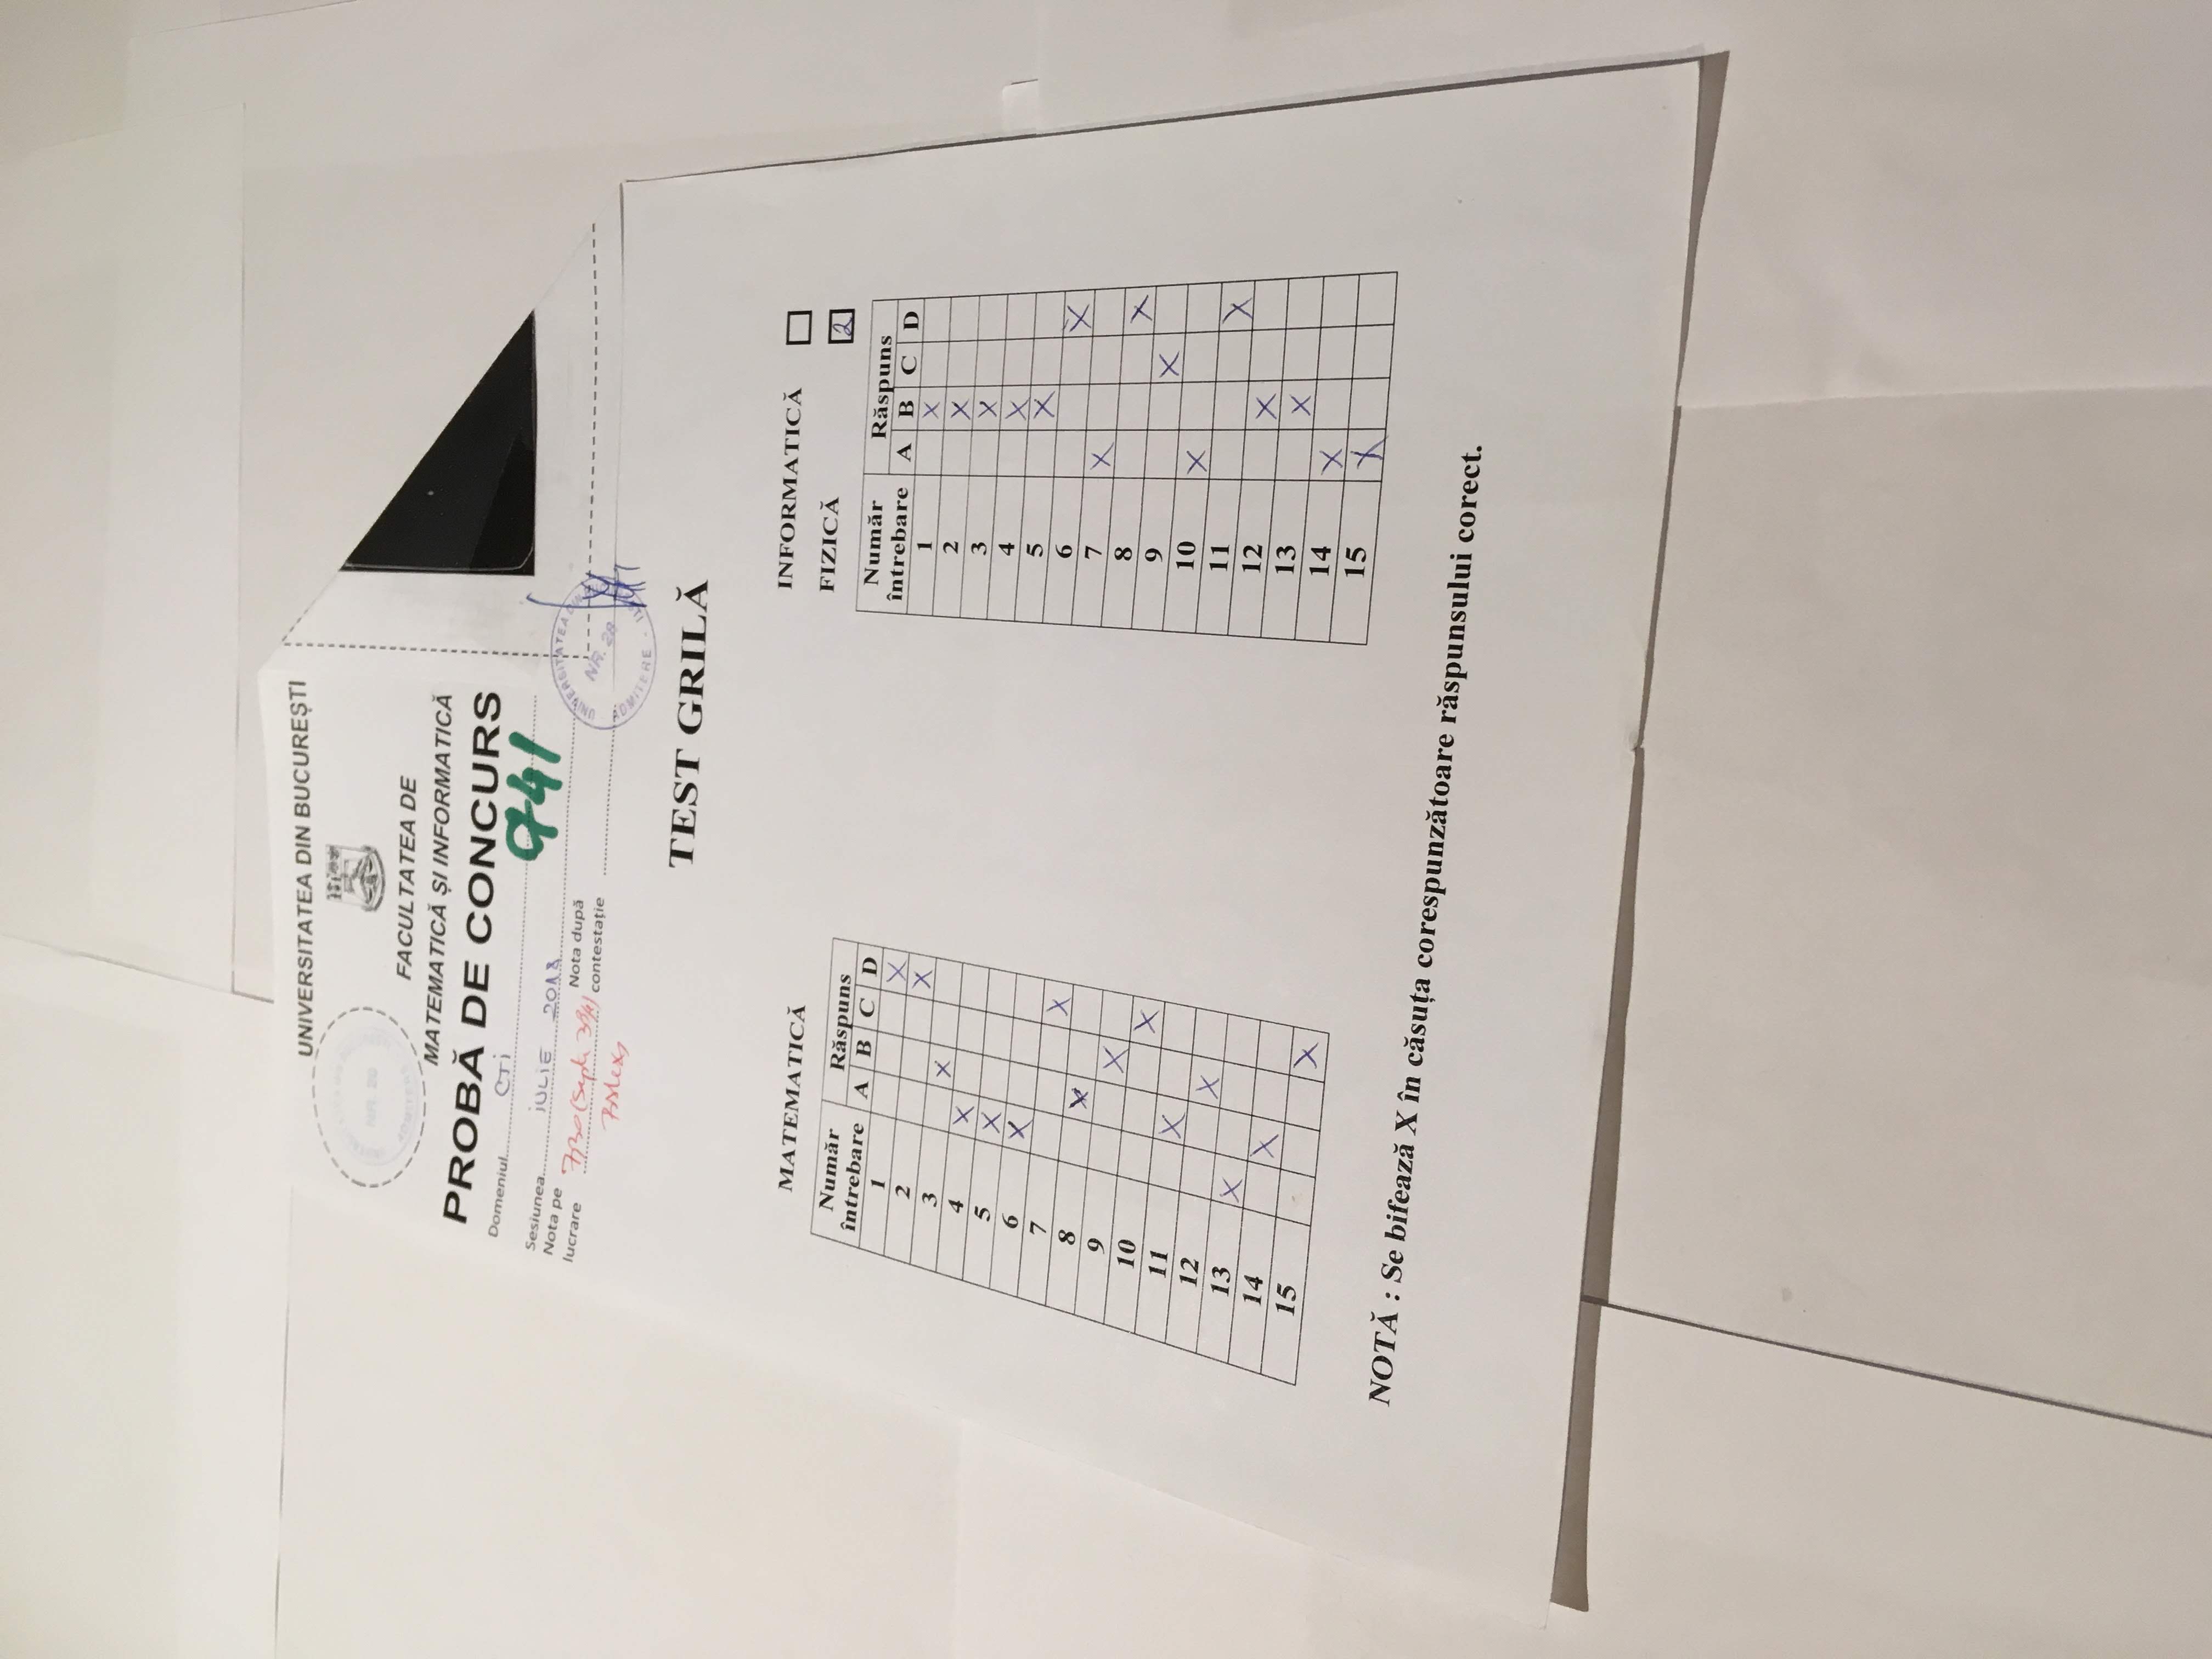 UNIVERSITATEA DIN BUCUREȘTI
ADMITERE
FACULTATEA DE
MATEMATICĂ ȘI INFORMATICĂ
PROBĂ DE CONCURS
Domeniul CTi
941
Sesiunea iULIE 2018
Nota pe lucrare 7,30 (
Nota după contestație
UNIVERSITATEA DIN
NR. 28
ADMITERE
TEST GRILĂ
MATEMATICĂ
Număr întrebare Răspuns
A B C D
1 X
2 X
3 X
4 X
5 X
6 X
7 X
8 X
9 X
10 X
11 X
12 X
13 X
14 X
15 X
INFORMATICĂ
FIZICĂ 2
Număr întrebare Răspuns
A B C D
1 X
2 X
3 X
4 X
5 X
6 X
7 X
8 X
9 X
10 X
11 X
12 X
13 X
14 X
15 X
NOTĂ : Se bifează X în căsuța corespunzătoare răspunsului corect.